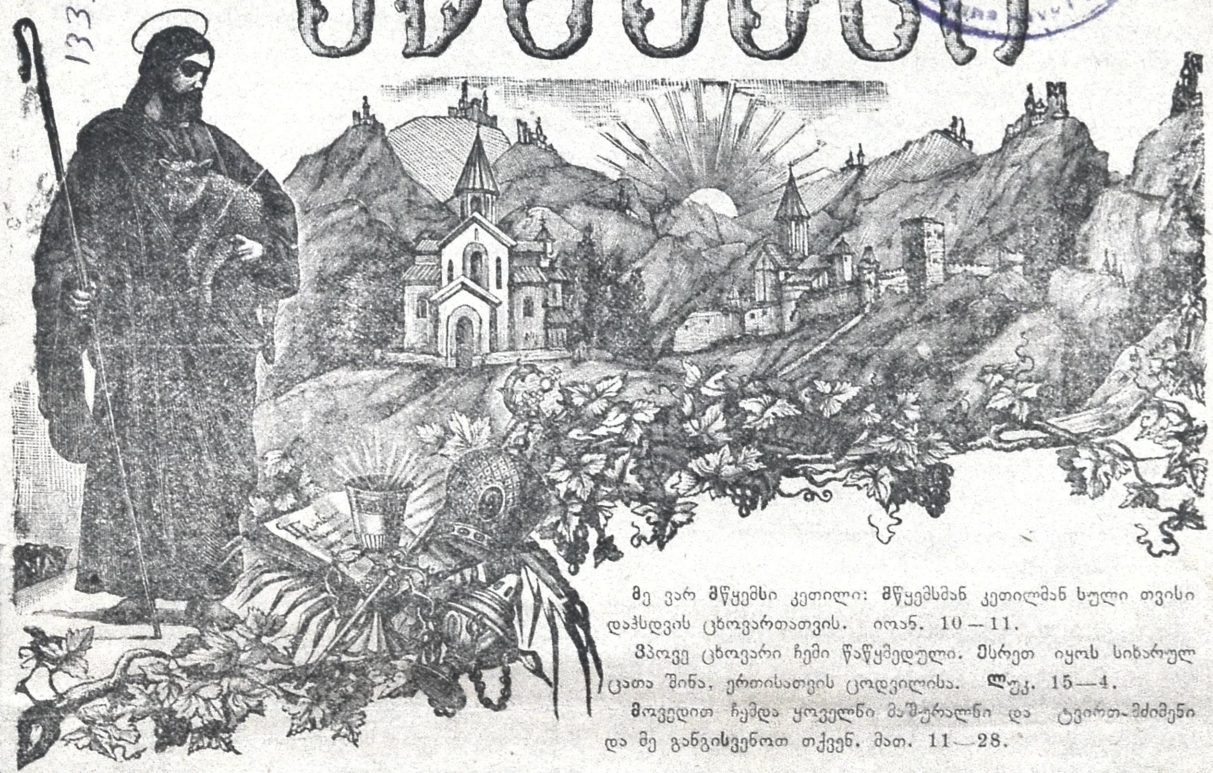 133
მე ვარ მწყემსი კეთილი: მწყემსმან კეთილმან სული თვისი
დაჰსდვის ცხოვართათვის. იოან. 10—11.
ვპოვე ცხოვარი ჩემი წაწყმედული. ესრეთ იყოს სიხარულ
ცათა შინა, ერთისათვის ცოდვილისა. ლუკ. 15—4.
მოვედით ჩემდა ყოველნი მაშურალნი და ტვირთ-მძიმენი
და მე განგისვენოთ თქვენ. მათ. 11—28.